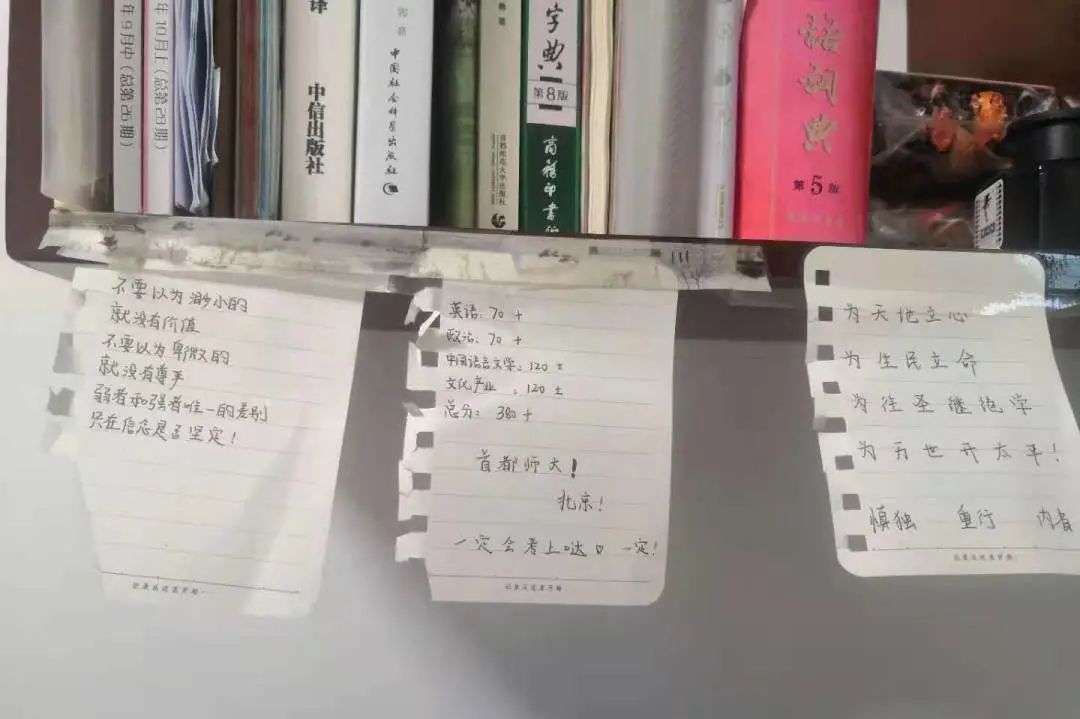 年9月中(总第26期)
年10月上(总第28期)
译
中信出版社
郭
中国社会科学出版社
首都师范大学出版社
字典
第8版
商务印书馆
语词典
第5版
不要以为渺小的
就没有价值
不要以为卑微的
就没有尊严
弱者和强者唯一的差别
只在信念是否坚定!
记录从这里开始
英语:70+
政治:70+
中国语言文学:120±
文化产业:120±
总分:380+
首都师大!
北京!
一定会考上哒♡一定!
记录从这里开始
为天地立心
为生民立命
为往圣继绝学
为万世开太平!
慎独 重行 内省
记录从这里开始